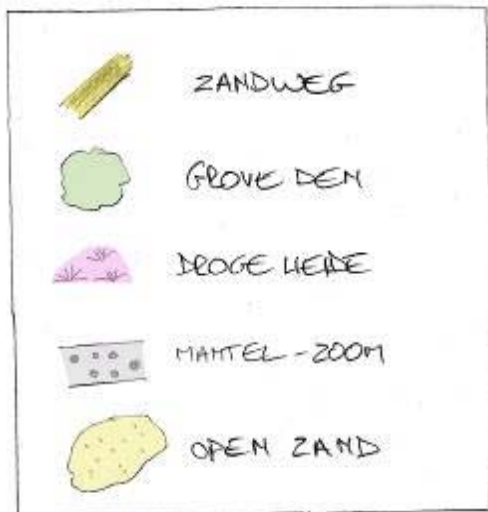 ZANDWEG
GROVE DEN
DROGE HEIDE
MANTEL-ZOOM
OPEN ZAND